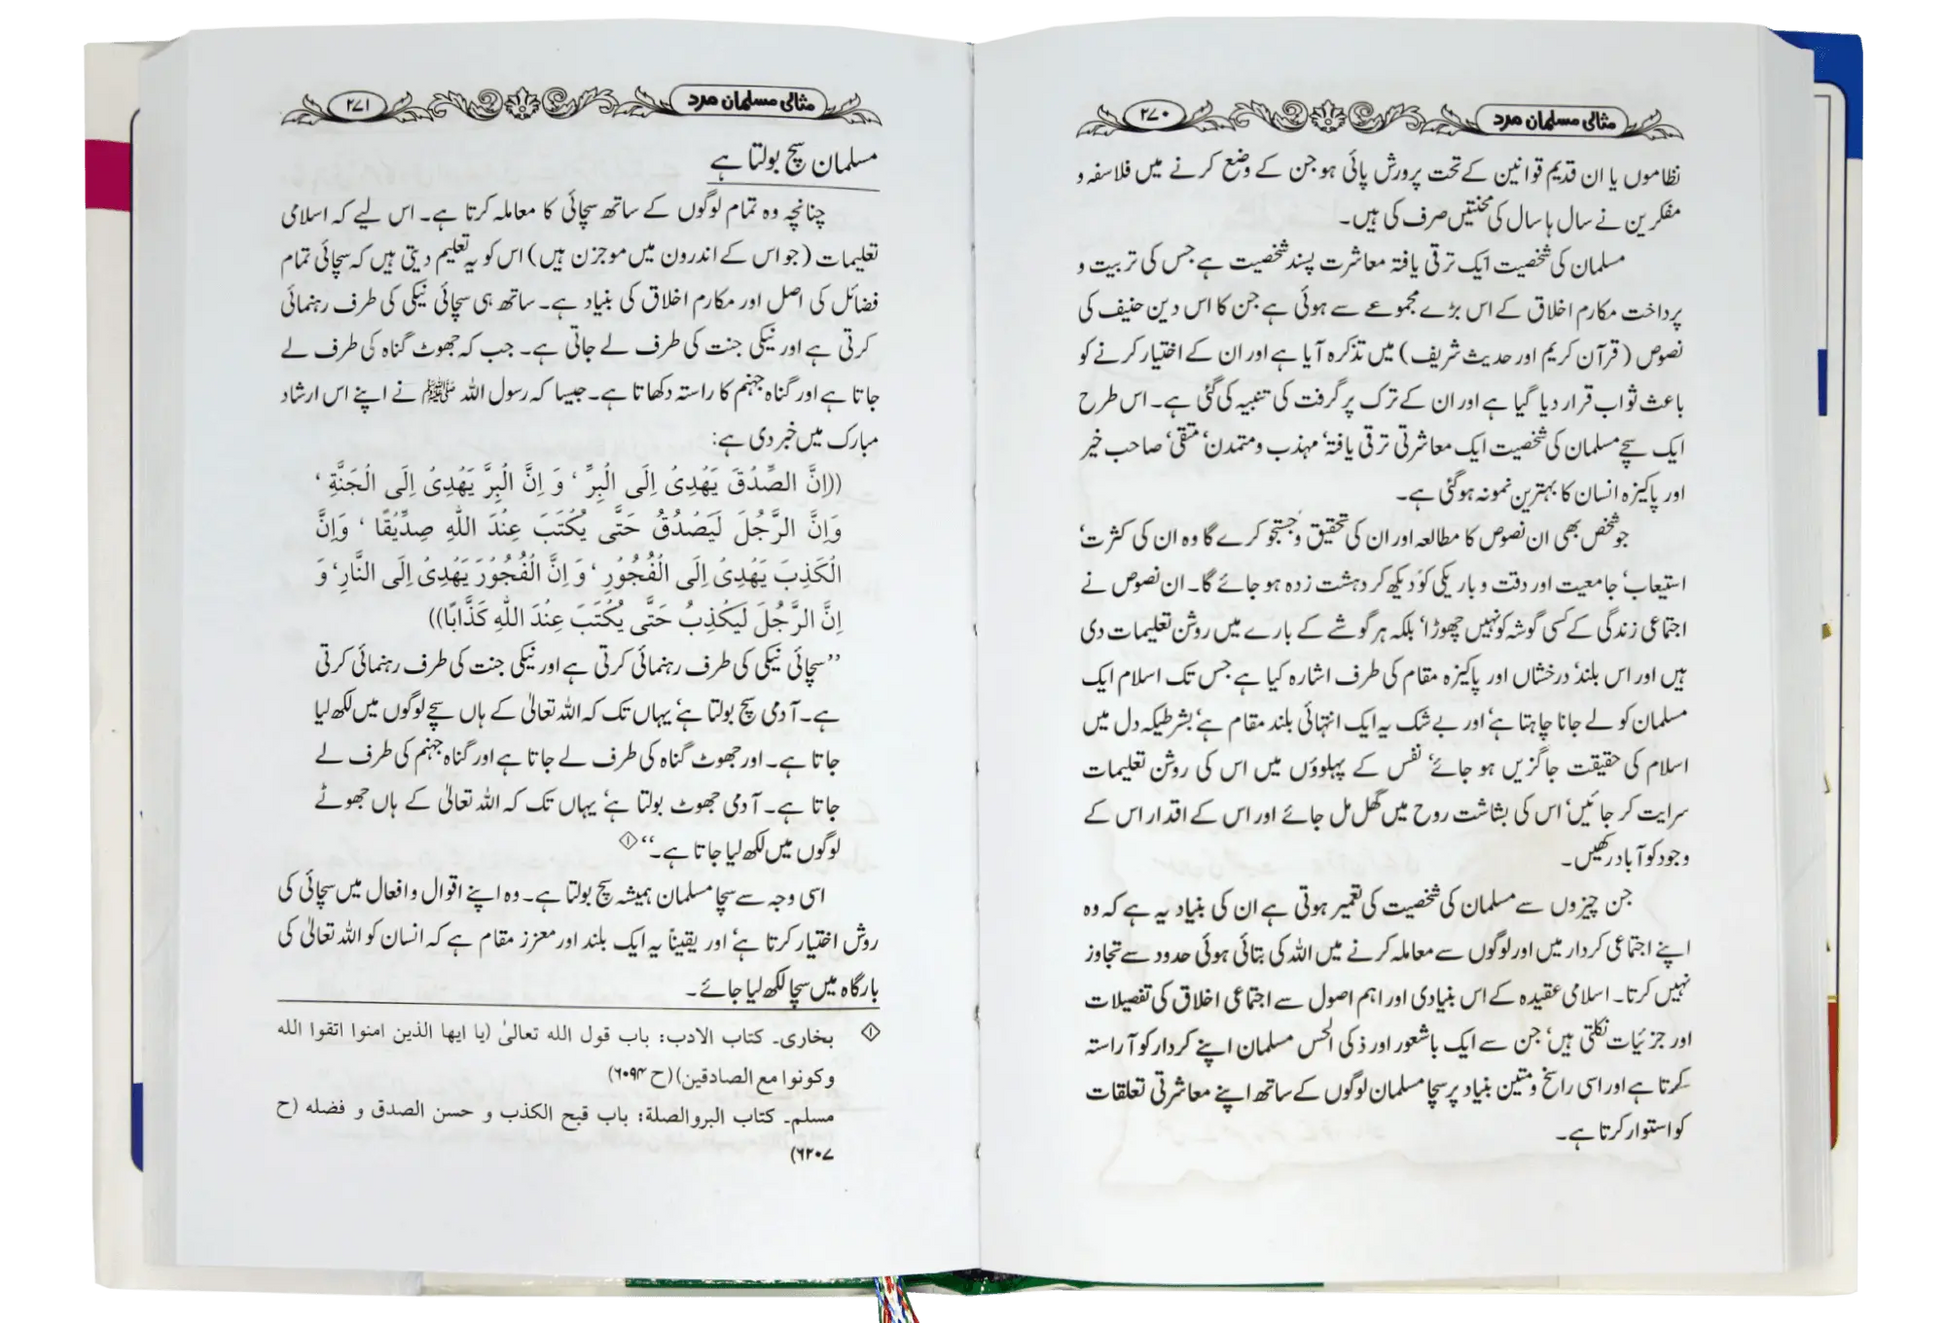 مثالی مسلمان مرد ۲۷۰
نظاموں یا ان قدیم قوانین کے تحت پرورش پائی ہو جن کے وضع کرنے میں فلاسفہ و
مفکرین نے سال ہا سال کی محنتیں صرف کی ہیں۔
مسلمان کی شخصیت ایک ترقی یافتہ معاشرت پسند شخصیت ہے جس کی تربیت و
پرداخت مکارم اخلاق کے اس بڑے مجموعے سے ہوئی ہے جن کا اس دین حنیف کی
نصوص (قرآن کریم اور حدیث شریف) میں تذکرہ آیا ہے اور ان کے اختیار کرنے کو
باعث ثواب قرار دیا گیا ہے اور ان کے ترک پر گرفت کی تنبیہ کی گئی ہے۔ اس طرح
ایک سچے مسلمان کی شخصیت ایک معاشرتی ترقی یافتہ‘ مہذب و متمدن‘ متقی‘ صاحب خیر
اور پاکیزہ انسان کا بہترین نمونہ ہو گئی ہے۔
جو شخص بھی ان نصوص کا مطالعہ اور ان کی تحقیق و جستجو کرے گا وہ ان کی کثرت‘
استیعاب‘ جامعیت اور دقت و باریکی کو دیکھ کر دہشت زدہ ہو جائے گا۔ ان نصوص نے
اجتماعی زندگی کے کسی گوشہ کو نہیں چھوڑا‘ بلکہ ہر گوشے کے بارے میں روشن تعلیمات دی
ہیں اور اس بلند‘ درخشاں اور پاکیزہ مقام کی طرف اشارہ کیا ہے جس تک اسلام ایک
مسلمان کو لے جانا چاہتا ہے‘ اور بے شک یہ ایک انتہائی بلند مقام ہے‘ بشرطیکہ دل میں
اسلام کی حقیقت جاگزیں ہو جائے‘ نفس کے پہلوؤں میں اس کی روشن تعلیمات
سرایت کر جائیں‘ اس کی بشاشت روح میں گھل مل جائے اور اس کے اقدار اس کے
وجود کو آباد رکھیں۔
جن چیزوں سے مسلمان کی شخصیت کی تعمیر ہوتی ہے ان کی بنیاد یہ ہے کہ وہ
اپنے اجتماعی کردار میں اور لوگوں سے معاملہ کرنے میں اللہ کی بتائی ہوئی حدود سے تجاوز
نہیں کرتا۔ اسلامی عقیدہ کے اس بنیادی اور اہم اصول سے اجتماعی اخلاق کی تفصیلات
اور جزئیات نکلتی ہیں‘ جن سے ایک باشعور اور ذکی الحس مسلمان اپنے کردار کو آراستہ
کرتا ہے اور اسی راسخ و متین بنیاد پر سچا مسلمان لوگوں کے ساتھ اپنے معاشرتی تعلقات
کو استوار کرتا ہے۔
مثالی مسلمان مرد ۲۷۱
مسلمان سچ بولتا ہے
چنانچہ وہ تمام لوگوں کے ساتھ سچائی کا معاملہ کرتا ہے۔ اس لیے کہ اسلامی
تعلیمات (جو اس کے اندرون میں موجزن ہیں) اس کو یہ تعلیم دیتی ہیں کہ سچائی تمام
فضائل کی اصل اور مکارم اخلاق کی بنیاد ہے۔ ساتھ ہی سچائی نیکی کی طرف رہنمائی
کرتی ہے اور نیکی جنت کی طرف لے جاتی ہے۔ جب کہ جھوٹ گناہ کی طرف لے
جاتا ہے اور گناہ جہنم کا راستہ دکھاتا ہے۔ جیسا کہ رسول اللہ ﷺ نے اپنے اس ارشاد
مبارک میں خبر دی ہے:
((اِنَّ الصِّدْقَ یَهْدِیْ اِلَی الْبِرِّ ‘ وَ اِنَّ الْبِرَّ یَهْدِیْ اِلَی الْجَنَّةِ ‘
وَاِنَّ الرَّجُلَ لَیَصْدُقُ حَتّٰی یُکْتَبَ عِنْدَ اللّٰهِ صِدِّیْقًا ‘ وَاِنَّ
الْکَذِبَ یَهْدِیْ اِلَی الْفُجُوْرِ ‘ وَ اِنَّ الْفُجُوْرَ یَهْدِیْ اِلَی النَّارِ‘ وَ
اِنَّ الرَّجُلَ لَیَکْذِبُ حَتّٰی یُکْتَبَ عِنْدَ اللّٰهِ کَذَّابًا))
’’سچائی نیکی کی طرف رہنمائی کرتی ہے اور نیکی جنت کی طرف رہنمائی کرتی
ہے۔ آدمی سچ بولتا ہے‘ یہاں تک کہ اللہ تعالیٰ کے ہاں سچے لوگوں میں لکھ لیا
جاتا ہے۔ اور جھوٹ گناہ کی طرف لے جاتا ہے اور گناہ جہنم کی طرف لے
جاتا ہے۔ آدمی جھوٹ بولتا ہے‘ یہاں تک کہ اللہ تعالیٰ کے ہاں جھوٹے
لوگوں میں لکھ لیا جاتا ہے۔‘‘ ۱
اسی وجہ سے سچا مسلمان ہمیشہ سچ بولتا ہے۔ وہ اپنے اقوال و افعال میں سچائی کی
روش اختیار کرتا ہے‘ اور یقیناً یہ ایک بلند اور معزز مقام ہے کہ انسان کو اللہ تعالیٰ کی
بارگاہ میں سچا لکھ لیا جائے۔
۱ بخاری۔ کتاب الادب: باب قول الله تعالیٰ (یا ایها الذین امنوا اتقوا الله
وکونوا مع الصادقین) (ح ۶۰۹۴)
مسلم۔ کتاب البروالصلة: باب قبح الکذب و حسن الصدق و فضله (ح
۲۶۰۷)